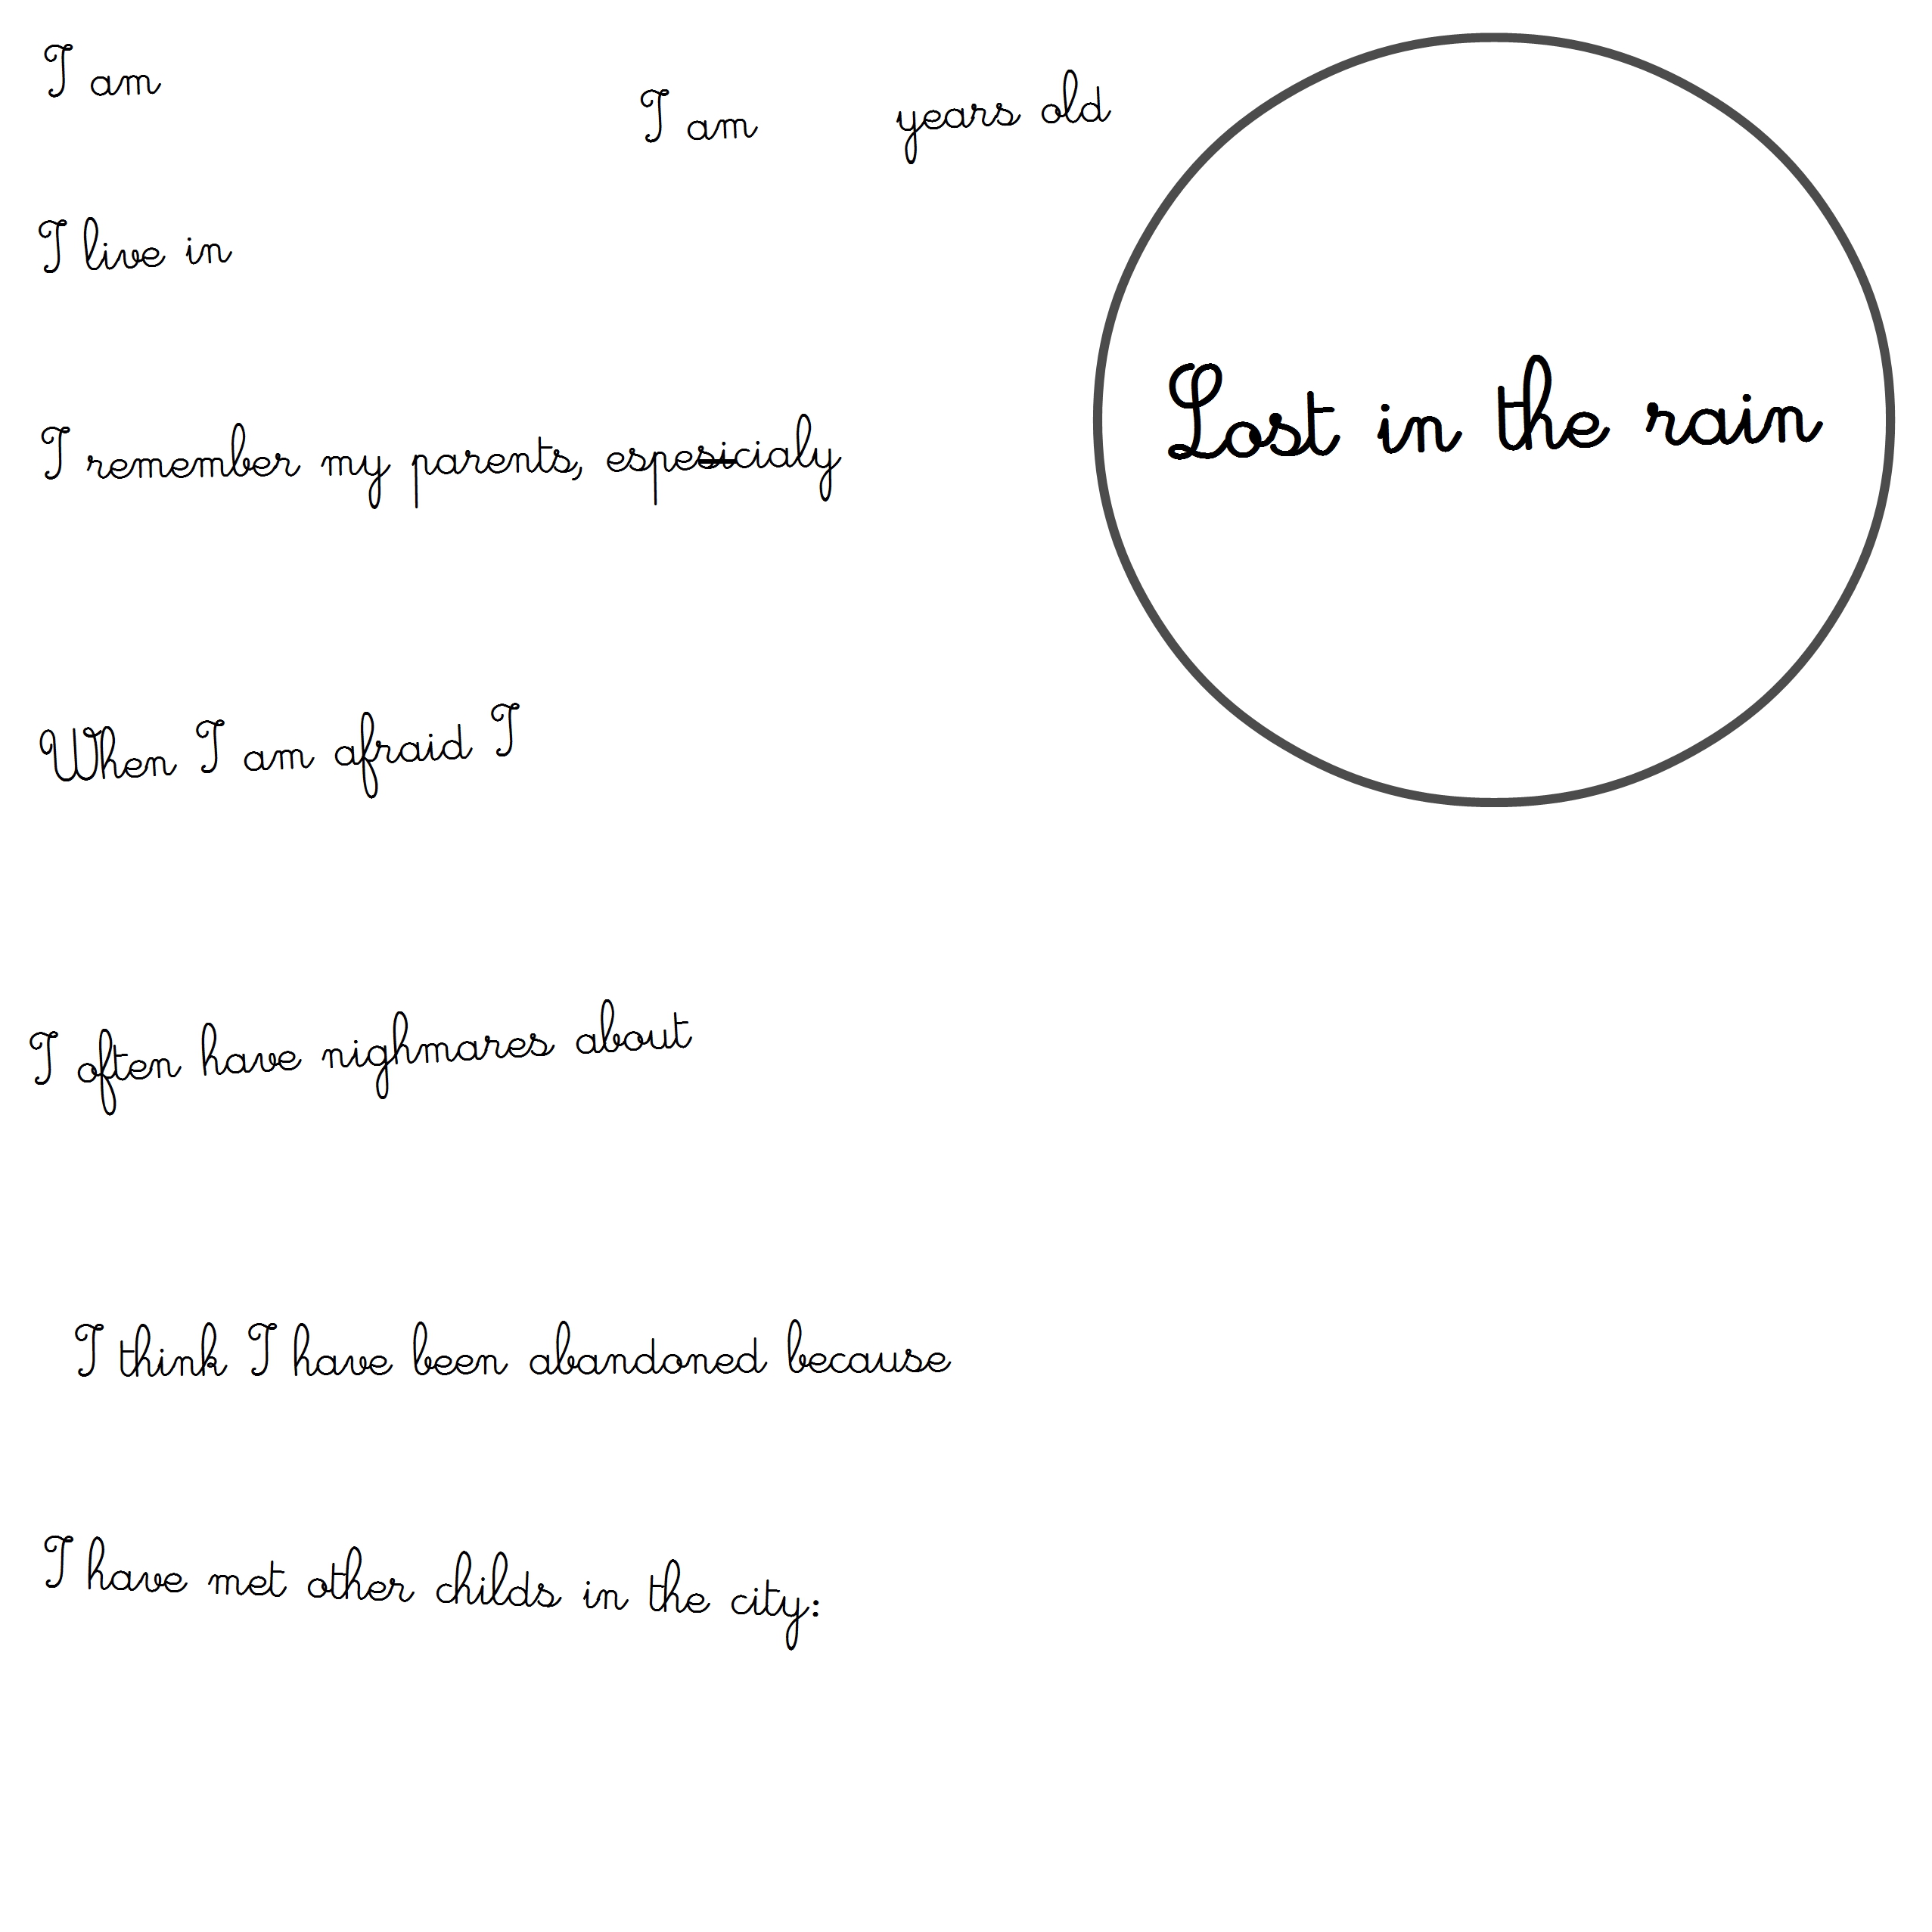 I am
I am years old
I live in
Lost in the rain
I remember my parents, espesicialy
When I am afraid I
I often have nighmares about
I think I have been abandoned because
I have met other childs in the city: